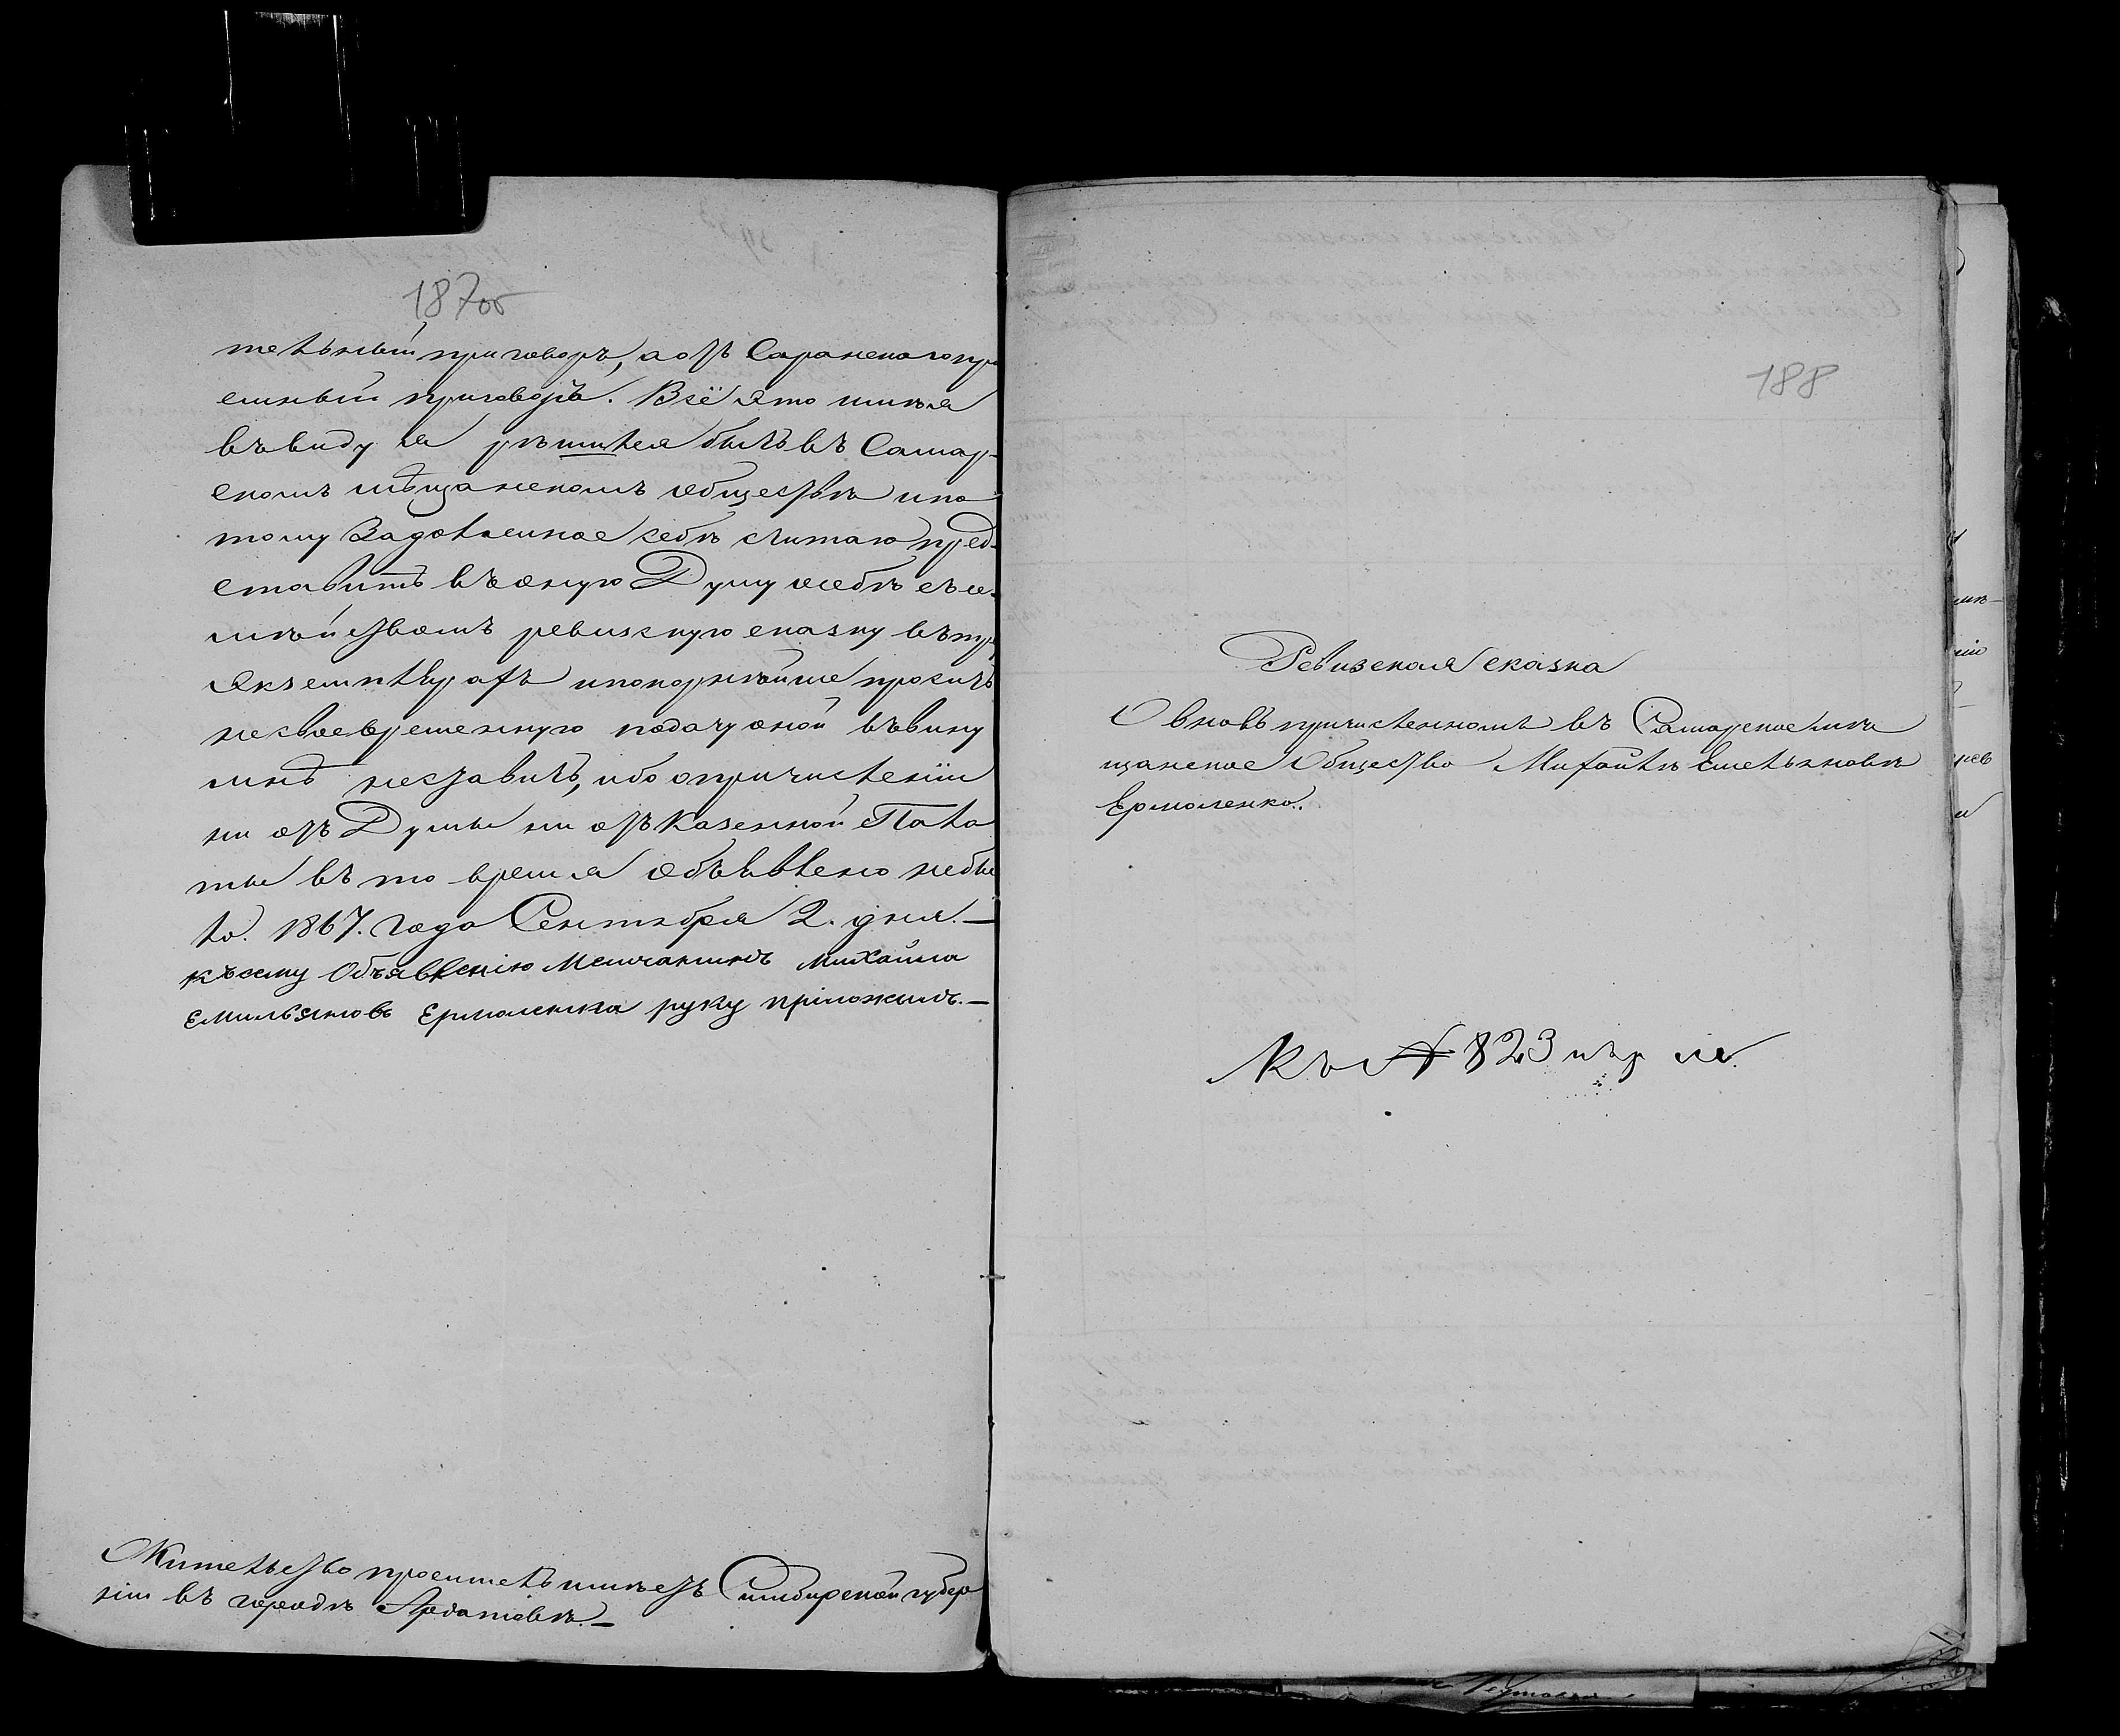 187об
тельный приговоръ, а отъ Саранскаго пре
емный приговоръ. Всё это имѣя
въ виду я рѣшился быть въ Самар-
скомъ мѣщанскомъ обществѣ и по
тому Задолженное себѣ считаю пред-
ставить въ оную Думу о себѣ съ се-
мѣйствомъ ревизскую сказку въ
экземплярахъ и покорнѣйше просить
несвоевременную подачу оной въ вину
мнѣ не ставить, ибо о причисленіи
ни отъ Думы ни отъ Казенной Пала
ты въ то время объявлено небы
ло. 1867. года Сентября 2. дня.—
къ сему Объявленію Мещанинъ Михайла
Емильяновъ Ермоленка руку приложилъ.—
Жительство проситель имѣетъ Симбирской губер
ніи въ городѣ Ардатовѣ.—
188
Ревизская сказка
О вновь причисленномъ въ Самарское мѣ
щанское Общество Михайлѣ Емельяновѣ
Ермоленко.
Къ № 823